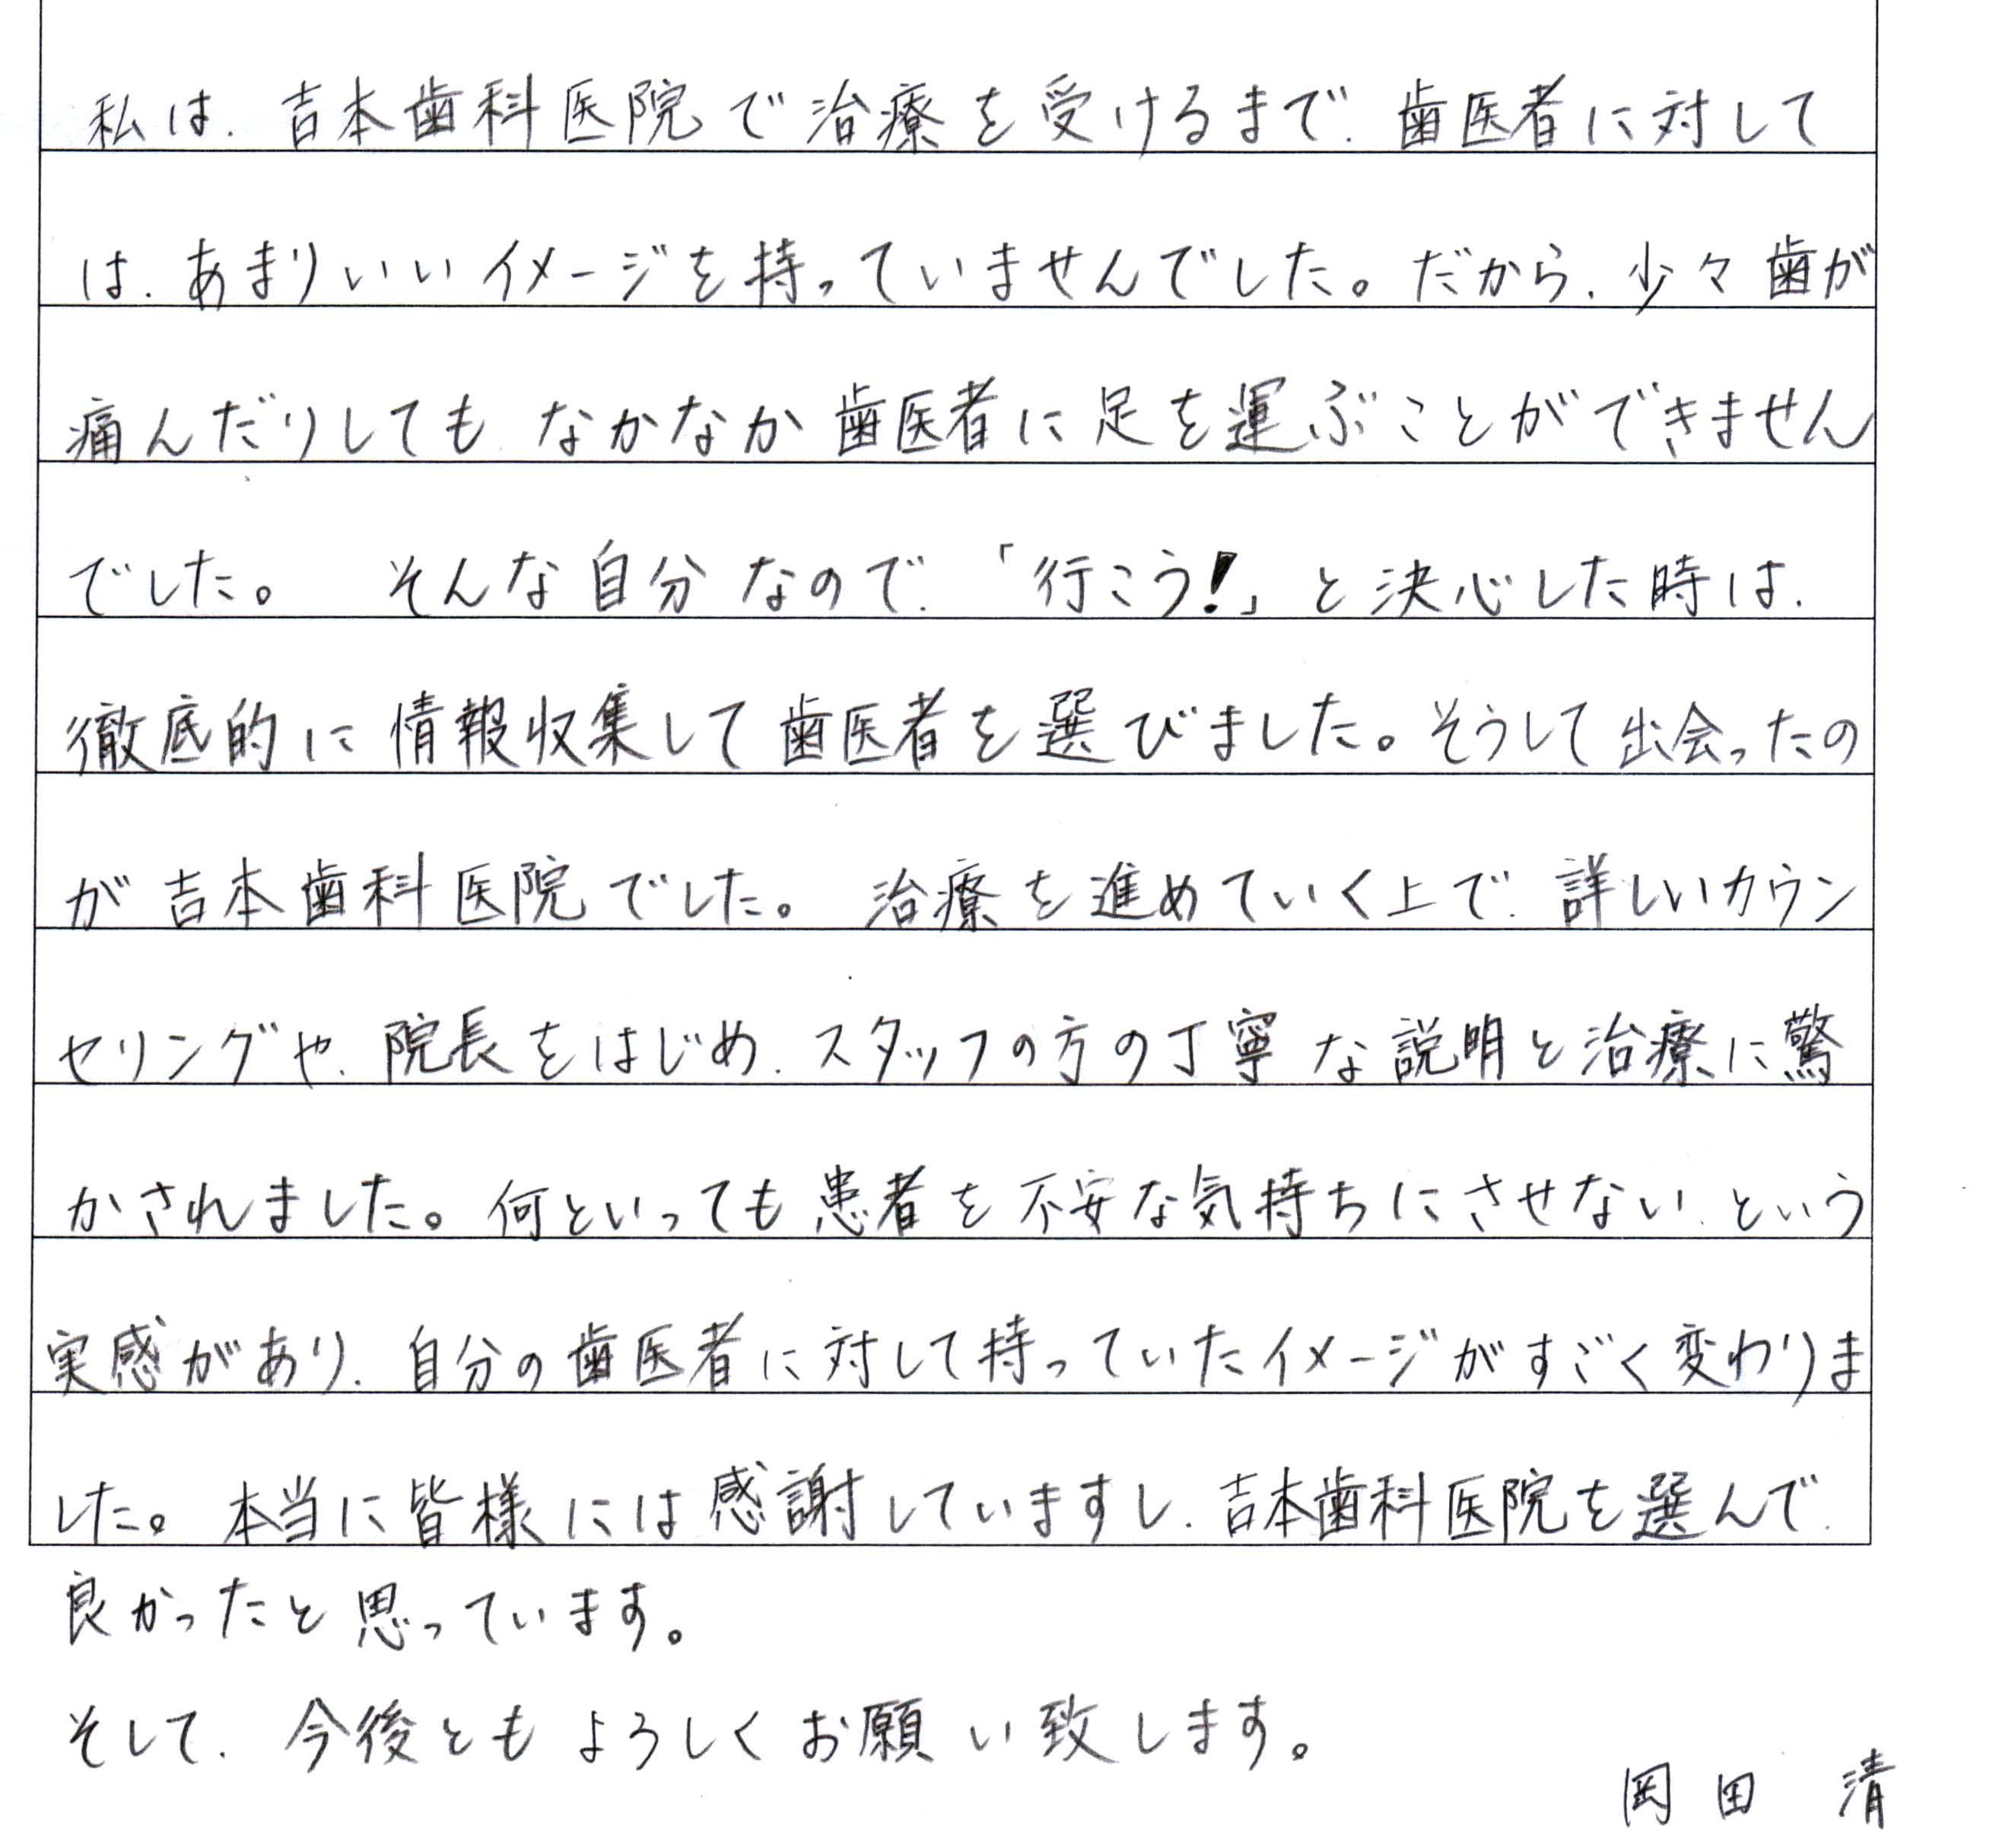 私は、吉本歯科医院で治療を受けるまで、歯医者に対して
は、あまりいいイメージを持っていませんでした。だから、少々歯が
痛んだりしても、なかなか歯医者に足を運ぶことができません
でした。 そんな自分なので、「行こう!」と決心した時は、
徹底的に情報収集して歯医者を選びました。そうして出会ったの
が吉本歯科医院でした。 治療を進めていく上で、詳しいカウン
セリングや、院長をはじめ、スタッフの方の丁寧な説明と治療に驚
かされました。何といっても患者を不安な気持ちにさせない、という
実感があり、自分の歯医者に対して持っていたイメージがすごく変わりま
した。本当に皆様には感謝していますし、吉本歯科医院を選んで、
良かったと思っています。
そして、今後ともよろしくお願い致します。
岡田 清